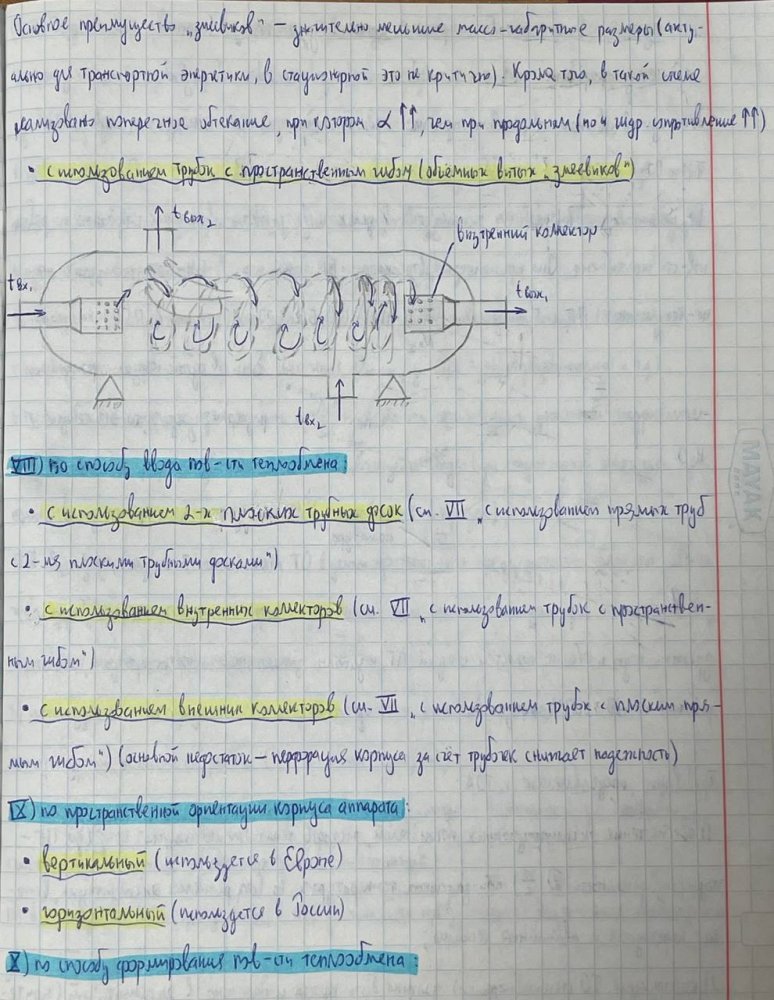 Основное преимущество „змеевиков" – значительно меньшие массо-габаритные размеры (акту-
ально для транспортной энергетики, в стационарной это не критично). Кроме того, в такой схеме
реализовано поперечное обтекание, при котором α ↑↑, чем при продольном (но и гидр. сопротивление ↑↑)
• с использованием трубок с пространственным гибом (объёмных витых „змеевиков")
tвых₂
внутренний коллектор
tвх₁
tвых₁
tвх₂
VIII) по способу ввода пов-сти теплообмена:
• с использованием 2-х плоских трубных досок (см. VII „с использованием прямых труб
с 2-мя плоскими трубными досками")
• с использованием внутренних коллекторов (см. VII „с использованием трубок с пространствен-
ным гибом")
• с использованием внешних коллекторов (см. VII „с использованием трубок с плоским пря-
мым гибом") (основной недостаток – перфорация корпуса за счёт трубочек снижает надежность)
IX) по пространственной ориентации корпуса аппарата:
• вертикальный (используется в Европе)
• горизонтальный (используется в России)
X) по способу формирования пов-сти теплообмена:
MAYAK